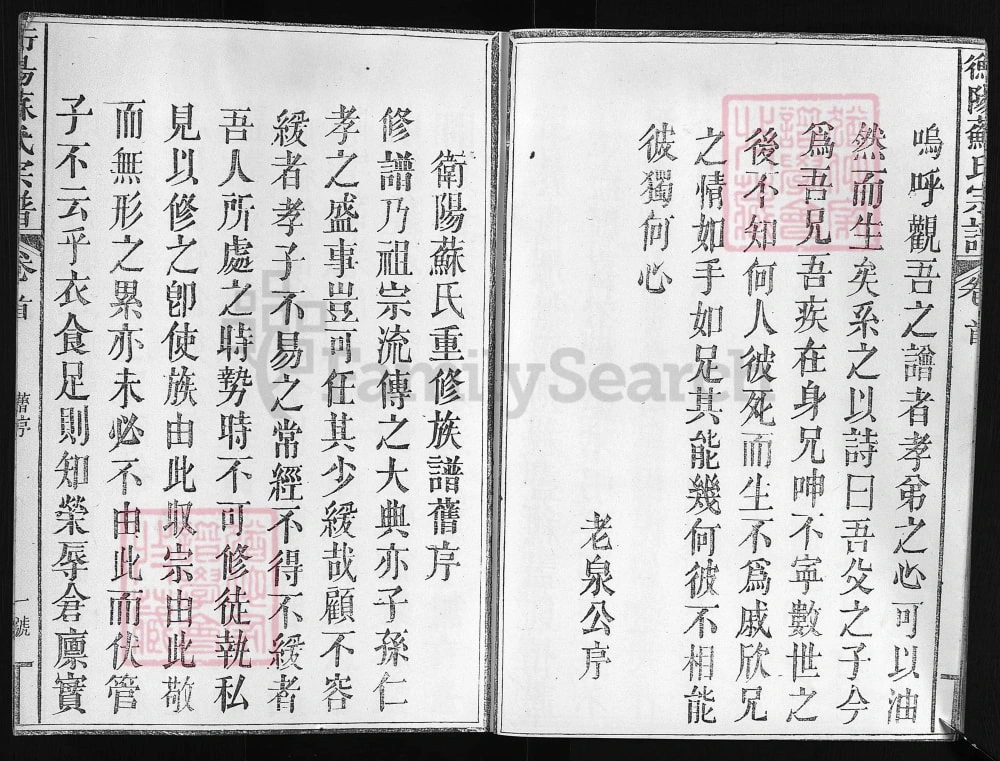 衡陽蘇氏宗譜 卷首
嗚呼觀吾之譜者孝弟之心可以油
然而生矣系之以詩曰吾父之子今
爲吾兄吾疾在身兄呻不寧數世之
後不知何人彼死而生不爲戚欣兄
之情如手如足其能幾何彼不相能
彼獨何心
老泉公序
衛陽蘇氏重修族譜舊序
修譜乃祖宗流傳之大典亦子孫仁
孝之盛事豈可任其少緩哉顧不容
緩者孝子不易之常經不得不緩者
吾人所處之時勢時不可修徒執私
見以修之卽使族由此収宗由此敬
而無形之累亦未必不由此而伏管
子不云乎衣食足則知榮辱倉廩實
衡陽蘇氏宗譜 卷首 一號
FamilySearch